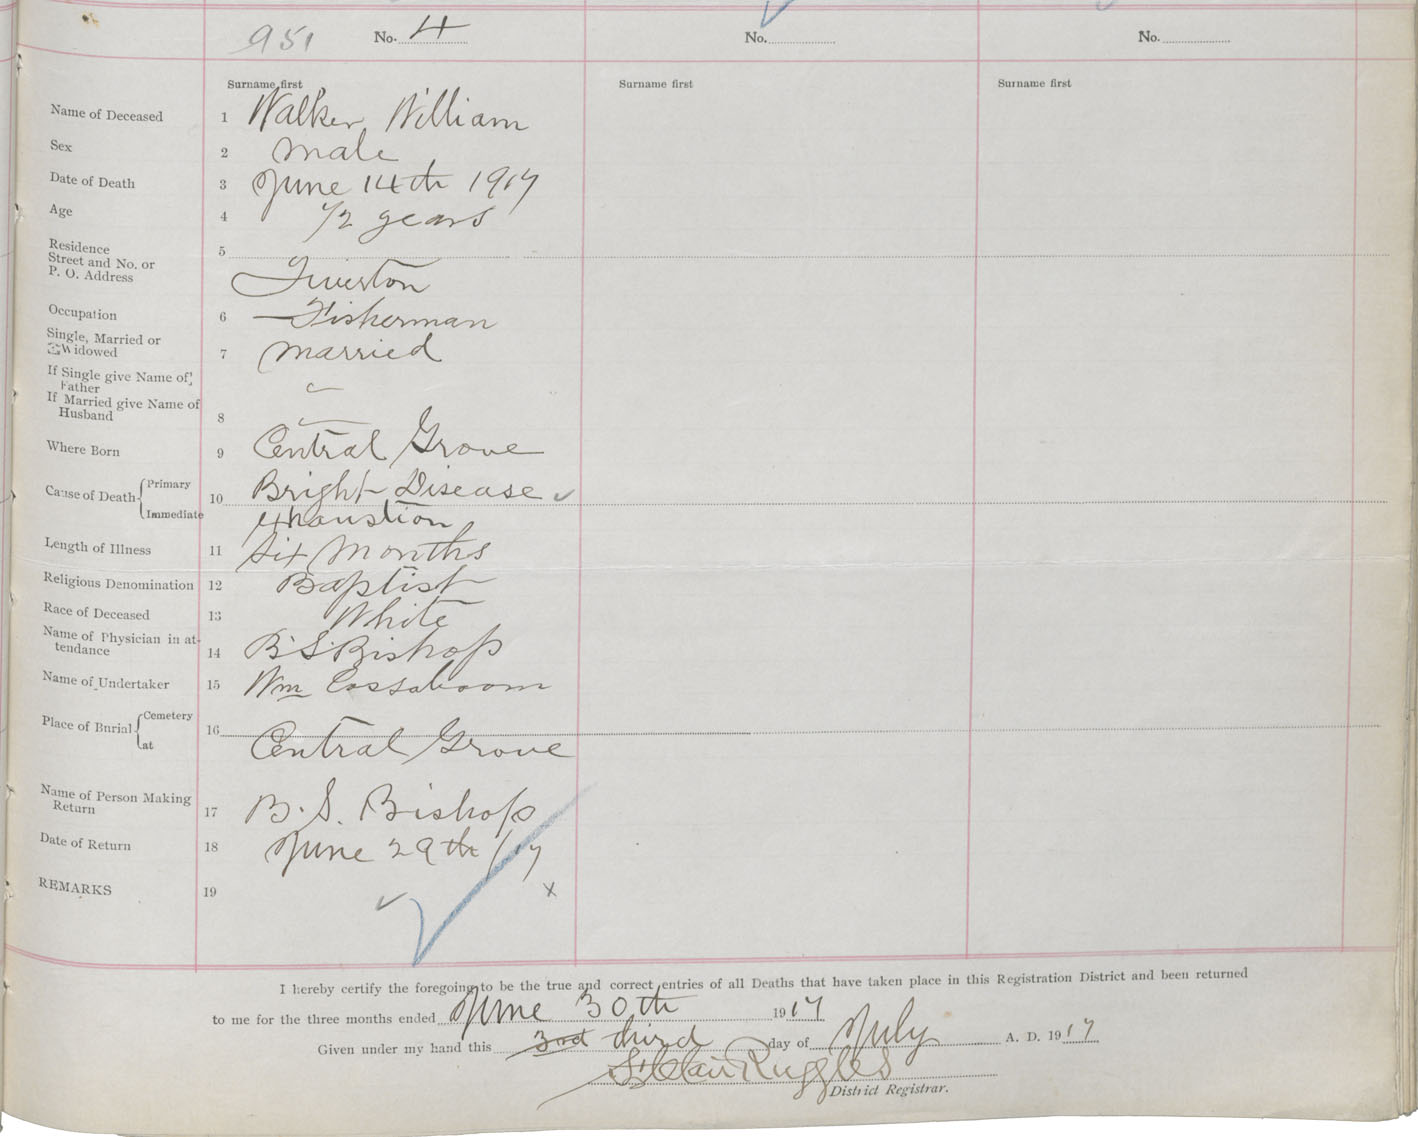 951 No. 4 No. No.
Surname first Surname first Surname first
Name of Deceased 1 Walker William
Sex 2 Male
Date of Death 3 June 14th 1917
Age 4 72 years
Residence 5
Street and No. or
P. O. Address Tiverton
Occupation 6 Fisherman
Single, Married or
Widowed 7 Married
If Single give Name of
Father
If Married give Name of
Husband 8
Where Born 9 Central Grove
Cause of Death Primary 10 Bright Disease ✓
Immediate exhaustion
Length of Illness 11 Six Months
Religious Denomination 12 Baptist
Race of Deceased 13 White
Name of Physician in at-
tendance 14 B. S. Bishop
Name of Undertaker 15 Wm Cossaboom
Place of Burial Cemetery 16
at Central Grove
Name of Person Making
Return 17 B. S. Bishop
Date of Return 18 June 29th /17
REMARKS 19 ✓ x
I hereby certify the foregoing to be the true and correct entries of all Deaths that have taken place in this Registration District and been returned
to me for the three months ended June 30th 1917
Given under my hand this 3rd third day of July A. D. 1917
St Clair Ruggles
District Registrar.